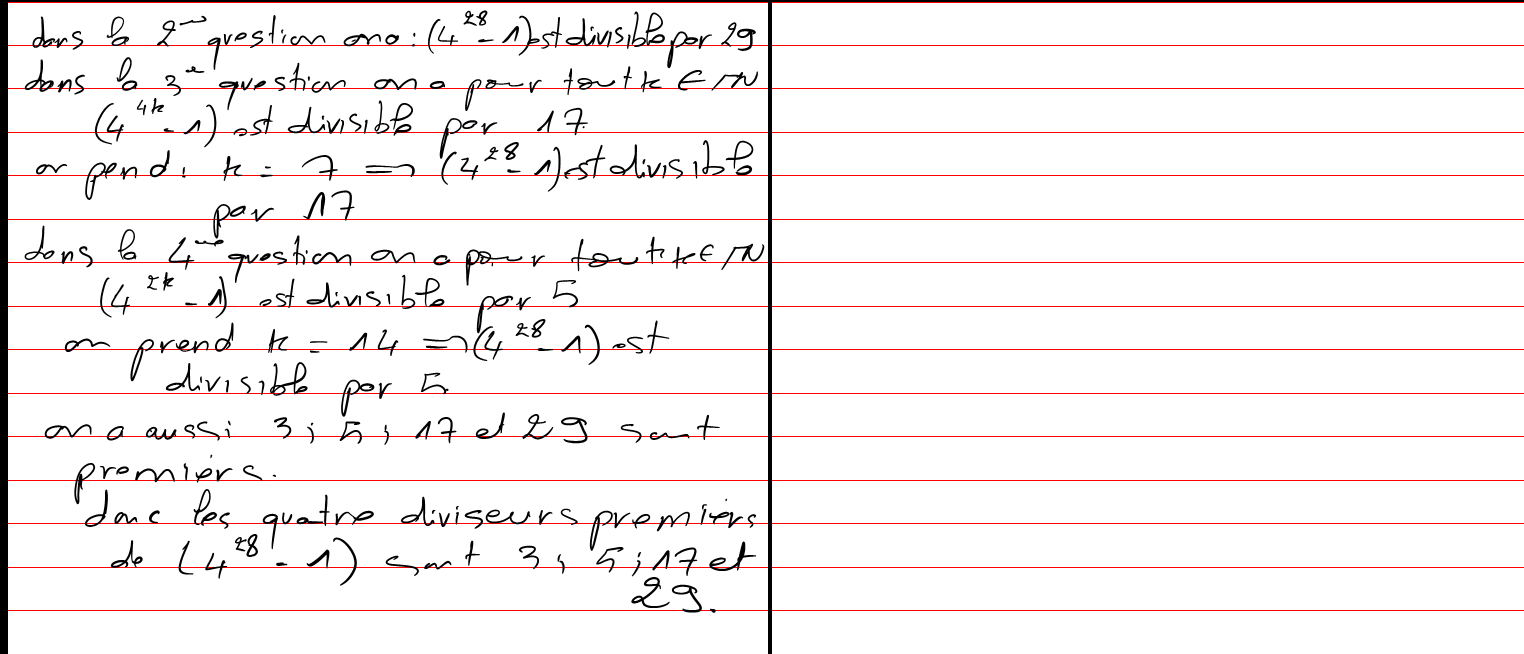 dans la 2ème question on a : (4^28 - 1) est divisible par 29
dans la 3è question on a pour tout k ∈ IN
(4^4k - 1) est divisible par 17
on pend : k = 7 => (4^28 - 1) est divisible
par 17
dans la 4ème question on a pour tout k ∈ IN
(4^2k - 1) est divisible par 5
on prend k = 14 => (4^28 - 1) est
divisible par 5
on a aussi 3 ; 5 ; 17 et 29 sont
premiers.
donc les quatre diviseurs premiers
de (4^28 - 1) sont 3 ; 5 ; 17 et
29.